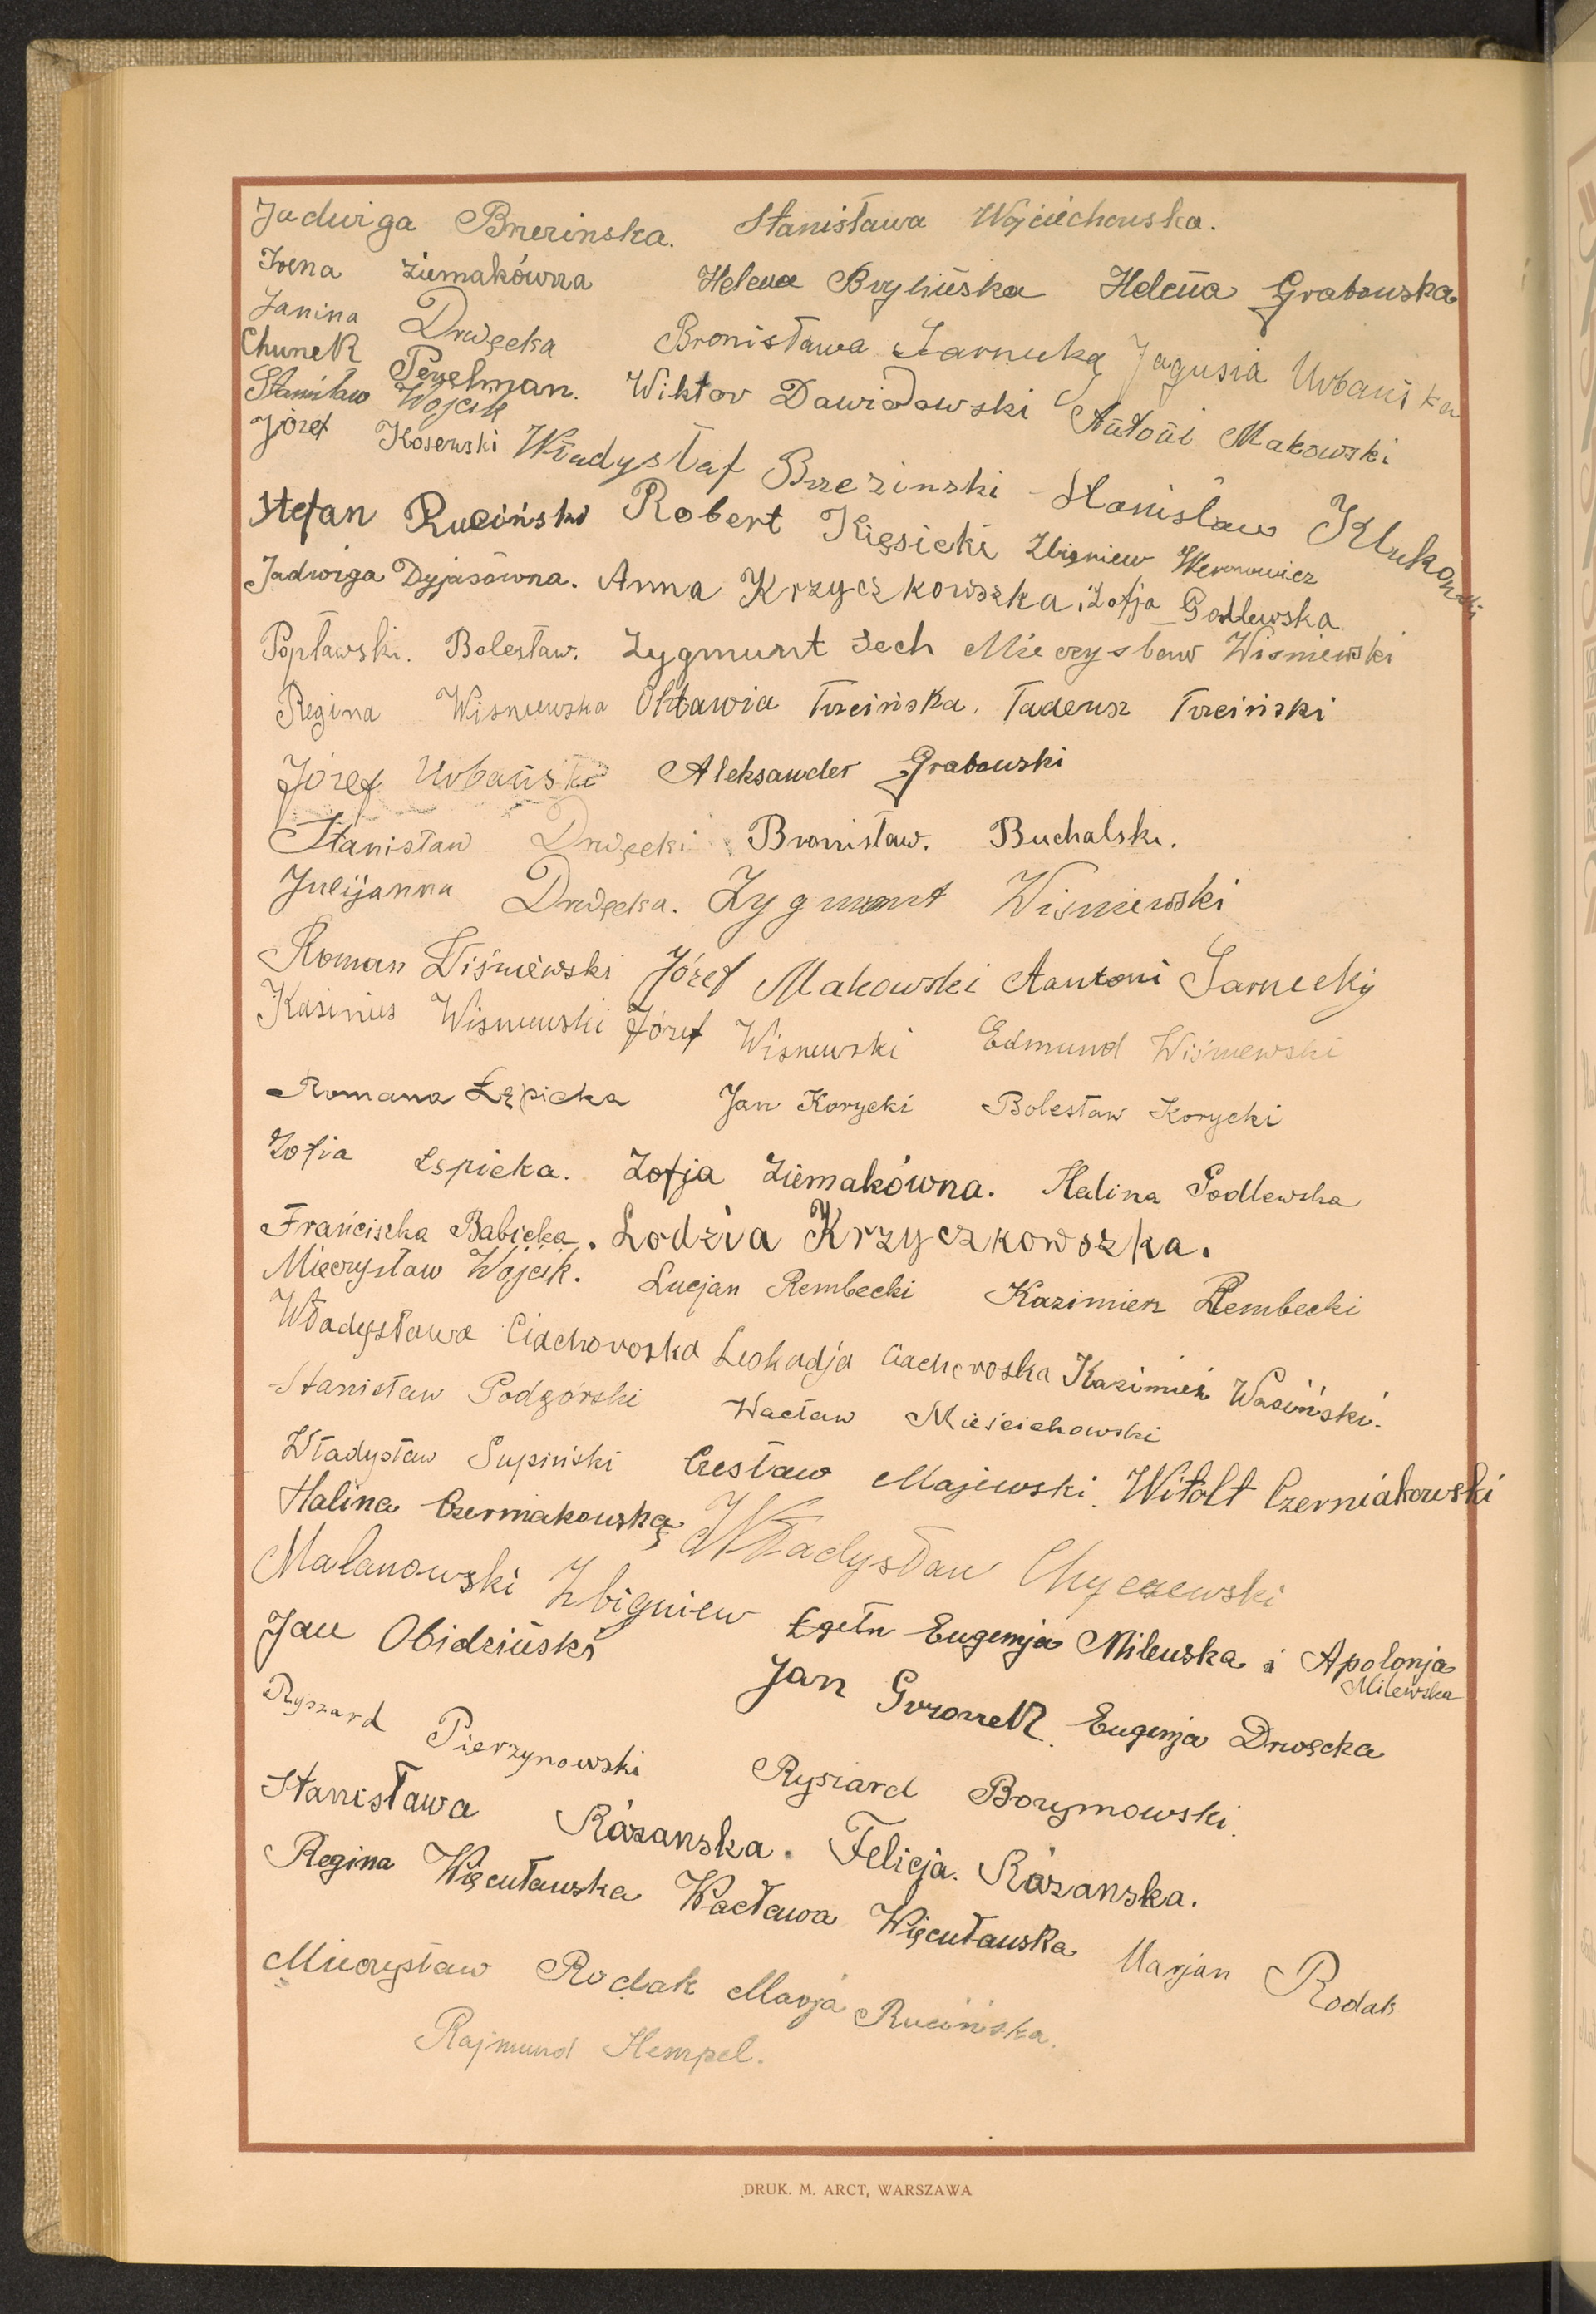 Jadwiga Brzezinska. Stanisława Wojciechowska.
Irena Ziemakówna Helena Brylińska Helena Grabowska
Janina Drwęcka Bronisława Żarnucka Jagusia Urbańska
Chunek Perelman. Wiktor Dawidowski Antoni Makowski
Stanisław Wójcik
Józef Kosewski Władysłaf Brzezinski Stanisław Klukowski
Stefan Ruciński Robert Kięsicki Zbigniew Weronowicz
Jadwiga Dyjasówna. Anna Krzyczkowszka i Zofja Godlewska
Popławski. Bolesław. Zygmunt Zech Mieczysław Wiśniewski
Regina Wisniewska Oktawia Trzcińska. Tadeusz Trzciński
Józef Urbański Aleksander Grabowski
Stanisław Drwęcki Bronisław. Buchalski.
Julijanna Drwęcka. Zygmunt Wiśniewski
Roman Wiśniewski Józef Makowski Aantoni Sarnecki
Wisniewski Józef Wisniewski Edmund Wiśniewski
Romana Łępicka Jan Korycki Bolesław Korycki
Zofia Łępicka. Zofja Ziemakówna. Halina Godlewska
Franciszka Babicka. Lodzia Krzyczkowszka.
Mieczysław Wójcik. Lucjan Rembecki Kazimierz Rembecki
Władysława Ciachoroska Leokadja Ciachoroska Kazimierz Wasiński.
Stanisław Podgórski Wacław Mieścichowski
Władysław Supiński Czesław Majewski. Witolt Czerniakowski
Halina Czerniakowska Władysław Chyczewski
Malanowski Zbigniew Eugenja Milewska i Apolonja Milewska
Jan Obidziński
Jan Gvzonek Eugenja Drwęcka
Ryszard Pierzynowski Ryszard Borzymowski.
Stanisława Rózanska. Felicja. Rózanska.
Regina Więcutawska Wacława Więcutawska Marjan Rodak
Mieczysław Rodak Marja Rucińska.
Rajmund Hempel.
DRUK. M. ARCT, WARSZAWA